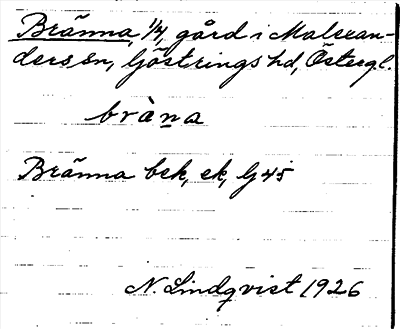 Bränna, 1/4, gård i Malexan-
ders sn, Göstrings hd, Östergl.
bràna
Bränna bek, ek, G 45
N. Lindqvist 1926